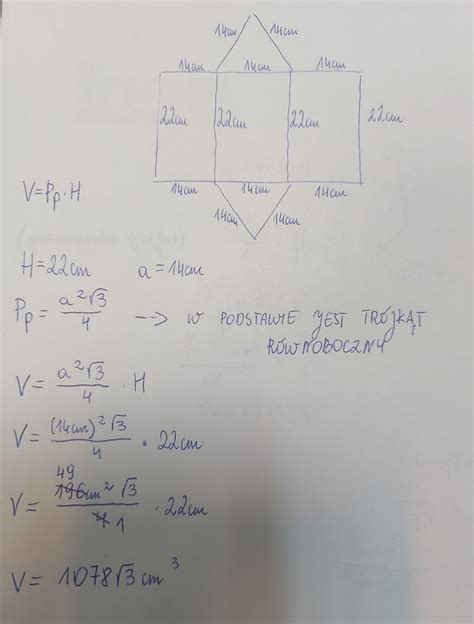 14cm 14cm
14cm 14cm 14cm
22cm 22cm 22cm 22cm
14cm 14cm 14cm
14cm 14cm
V=Pp·H
H=22cm a=14cm
Pp= a²√3/4 --> W PODSTAWIE JEST TRÓJKĄT
RÓWNOBOCZNY
V= a²√3/4 · H
V= (14cm)²√3/4 · 22cm
49
V= 196cm²√3/4 1 · 22cm
V= 1078√3 cm³